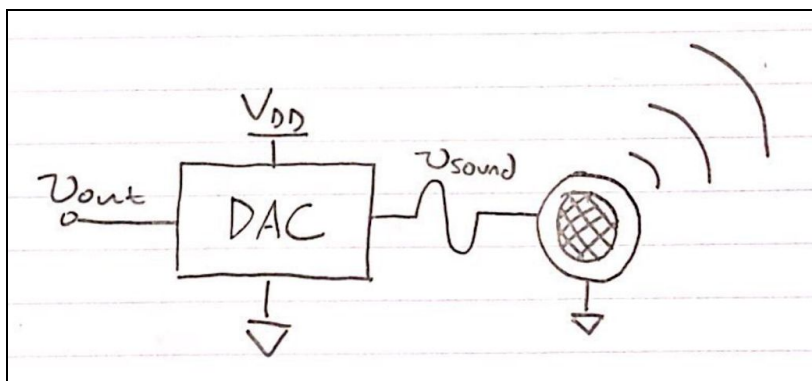 VDD
vout
DAC
vsound